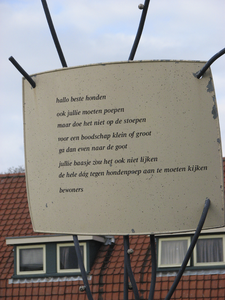 hallo beste honden
ook jullie moeten poepen
maar doe het niet op de stoepen
voor een boodschap klein of groot
ga dan even naar de goot
jullie baasje zou het ook niet lijken
de hele dag tegen hondenpoep aan te moeten kijken
bewoners